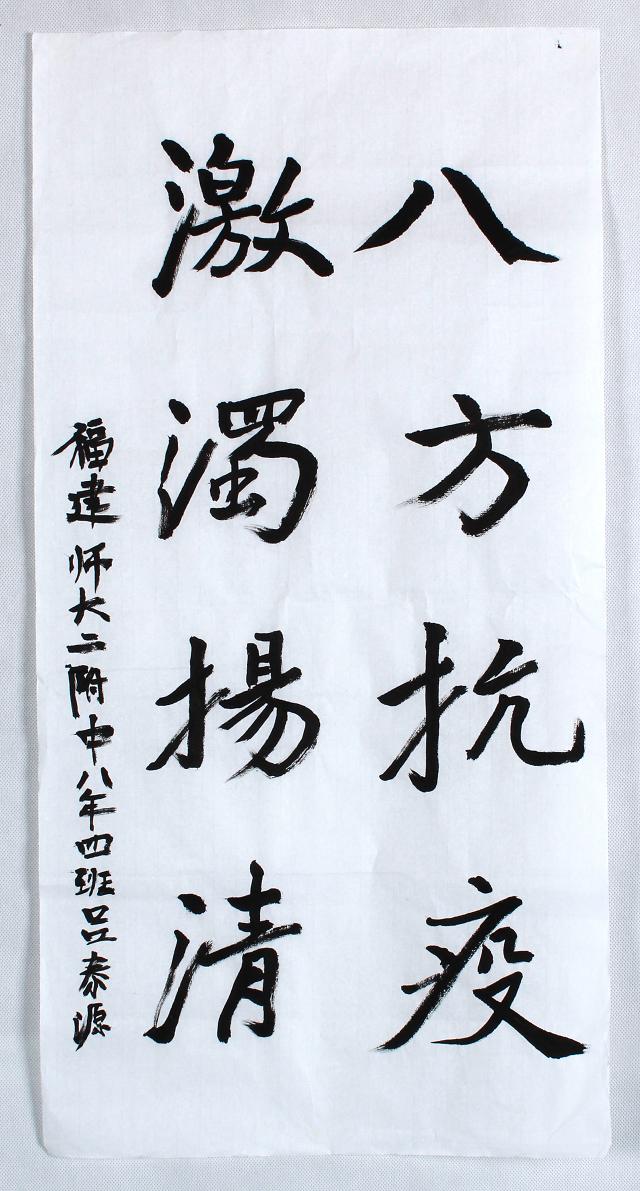 八方抗疫
激濁揚清
福建师大二附中八年四班吕泰源